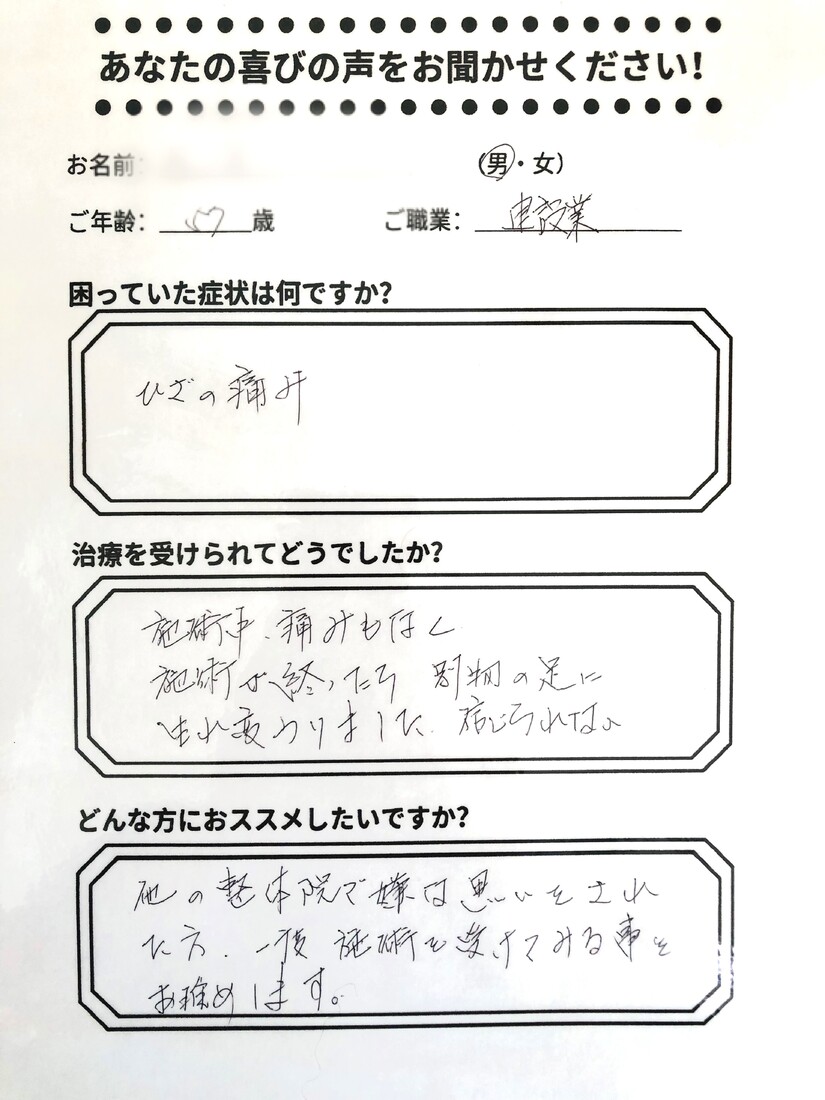 あなたの喜びの声をお聞かせください!
お名前: (男・女)
ご年齢: 歳 ご職業: 建設業
困っていた症状は何ですか?
ひざの痛み
治療を受けられてどうでしたか?
施術中、痛みもなく
施術が終ったら 別物の足に
生れ変わりました. 信じられない
どんな方におススメしたいですか?
他の整体院で嫌な思いをされ
た方. 一度 施術を受けてみる事を
お推めします。